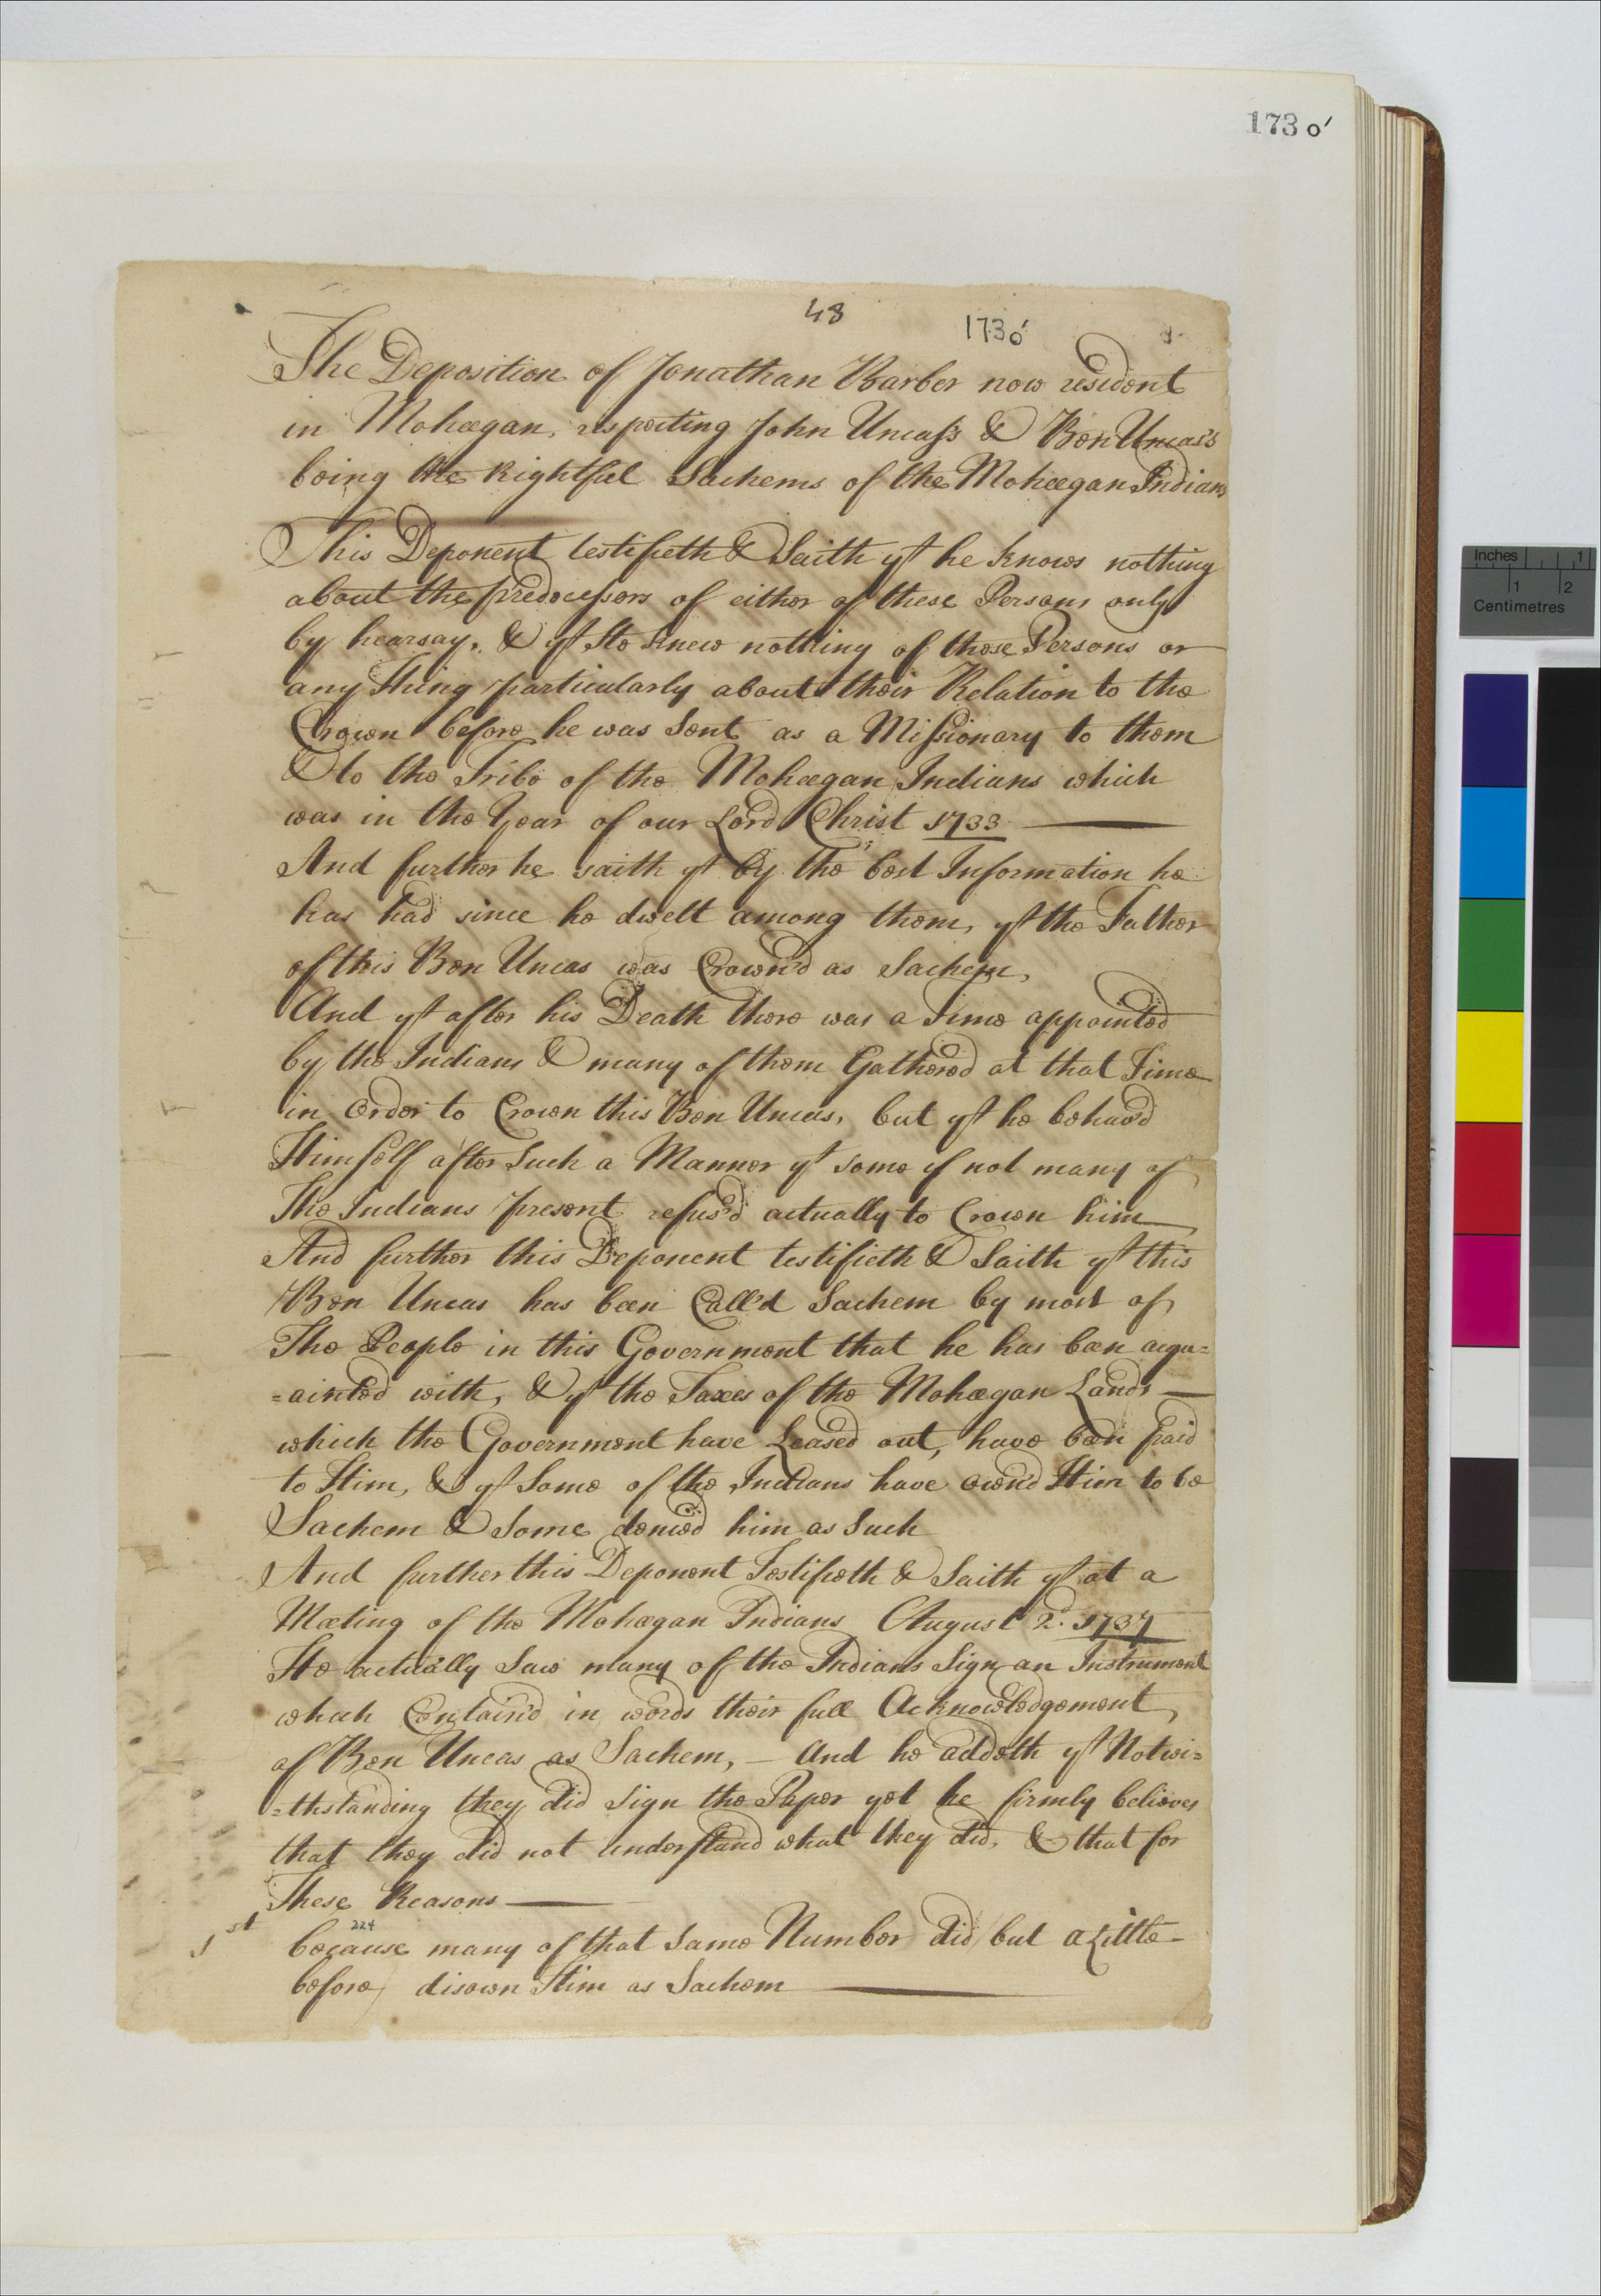 173 o'
48
173 o'
The Deposition of Jonathan Barber now resident
in Moheegan, respecting John Uncass's & Ben Uncas's
being the Rightful Sachems of the Moheegan Indians
This Deponent testifieth & Saith yt he knows nothing
about the predecessors of either of these Persons only
by hearsay, & yt He knew nothing of those Persons or
any Thing particularly about their Relation to the
Crown before he was Sent as a Missionary to them
& to the Tribe of the Moheegan Indians which
was in the Year of our Lord Christ 1733
And further he saith yt by the best Information he
has had since he dwelt among them, yt the Father
of this Ben Uncas was Crown'd as Sachem,
And yt after his Death there was a Time appointed
by the Indians & many of them Gathered at that Time
in Order to Crown this Ben Uncas, but yt he behav'd
Himself after Such a Manner yt some if not many of
The Indians present refus'd actually to Crown him
And further this Deponent testifieth & Saith yt this
Ben Uncas has been Call'd Sachem by most of
The People in this Government that he has been acqu=
=ainted with, & yt the Taxes of the Moheegan Lands
which the Government have Leased out, have been paid
to Him, & yt Some of the Indians have own'd Him to be
Sachem & Some denied him as Such
And further this Deponent Testifieth & Saith yt at a
Meeting of the Moheegan Indians August 2d. 1737
He actually Saw many of the Indians Sign an Instrument
which Contain'd in words their full Acknowledgement
of Ben Uncas as Sachem, — And he addeth yt Notwi=
=thstanding they did sign the Paper yet he firmly believes
that they did not understand what they did, & that for
These Reasons
224
1st because many of that same Number did but a Little
before disown Him as Sachem
Inches 1
1 2
Centimetres